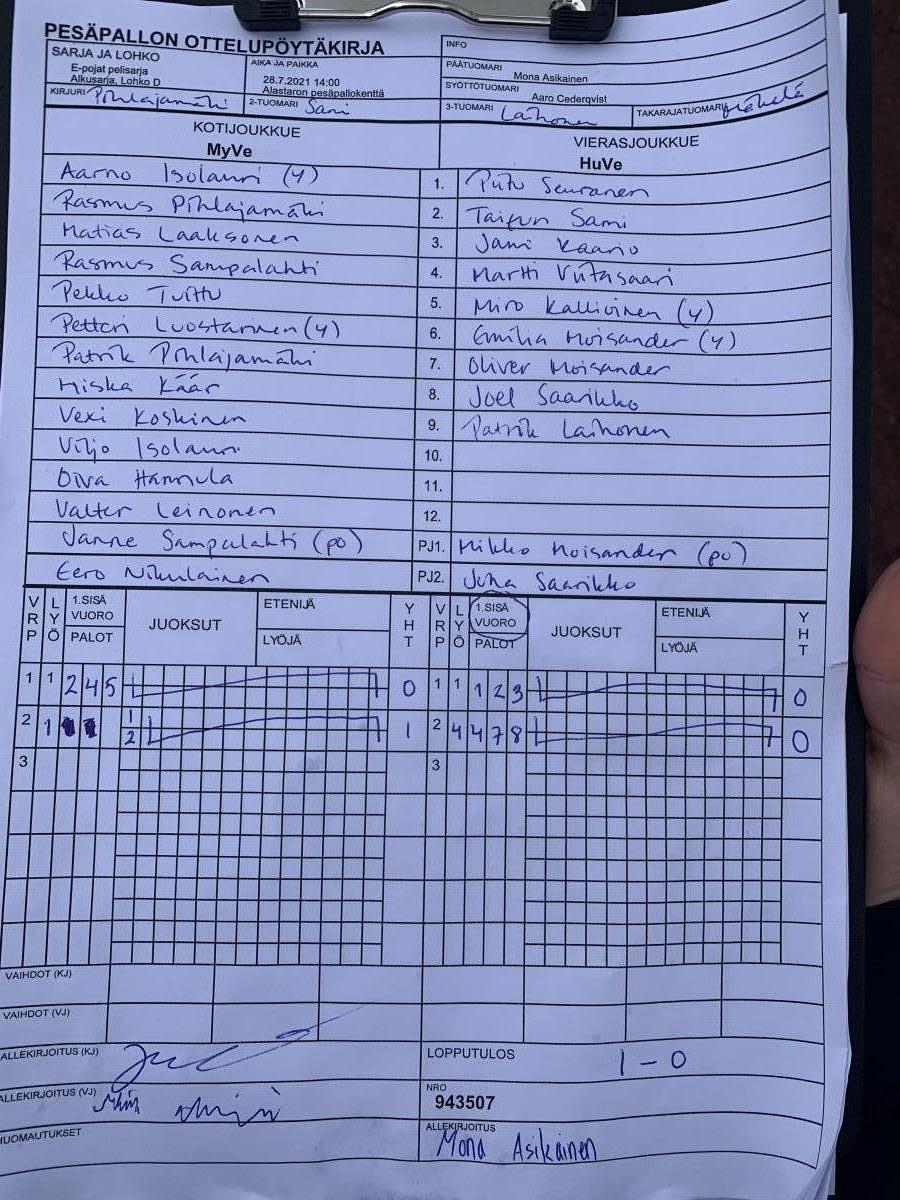 PESÄPALLON OTTELUPÖYTÄKIRJA
SARJA JA LOHKO
E-pojat pelisarja
Alkusarja, Lohko D
AIKA JA PAIKKA
28.7.2021 14:00
Alastaron pesäpallokenttä
INFO
PÄÄTUOMARI
Mona Asikainen
SYÖTTÖTUOMARI
Aaro Cederqvist
KIRJURI Pihlajamäki
2-TUOMARI Sami
3-TUOMARI Laihonen
TAKARAJATUOMARI
KOTIJOUKKUE
MyVe
VIERASJOUKKUE
HuVe
Aarno Isolauri (y) 1. Piitu Seuranen
Rasmus Pihlajamäki 2. Taifun Sami
Matias Laaksonen 3. Jami Kaario
Rasmus Sampalahti 4. Martti Viitasaari
Pekko Tuittu 5. Miro Kallioinen (y)
Petteri Luostarinen (y) 6. Emilia Moisander (y)
Patrik Pihlajamäki 7. Oliver Moisander
Miska Käär 8. Joel Saarikko
Vexi Koskinen 9. Patrik Laihonen
Viljo Isolauri 10.
Oiva Hannula 11.
Valter Leinonen 12.
Janne Sampalahti (po) PJ1. Mikko Moisander (po)
Eero Nikulainen PJ2. Juha Saarikko
VRP LYÖ 1.SISÄ VUORO PALOT JUOKSUT ETENIJÄ LYÖJÄ YHT VRP LYÖ 1.SISÄ VUORO PALOT JUOKSUT ETENIJÄ LYÖJÄ YHT
1 1 2 4 5 0 1 1 1 2 3 0
2 1 1 2 1 2 4 4 7 8 0
3 3
VAIHDOT (KJ)
VAIHDOT (VJ)
ALLEKIRJOITUS (KJ)
LOPPUTULOS 1 - 0
ALLEKIRJOITUS (VJ)
NRO
943507
HUOMAUTUKSET
ALLEKIRJOITUS
Mona Asikainen